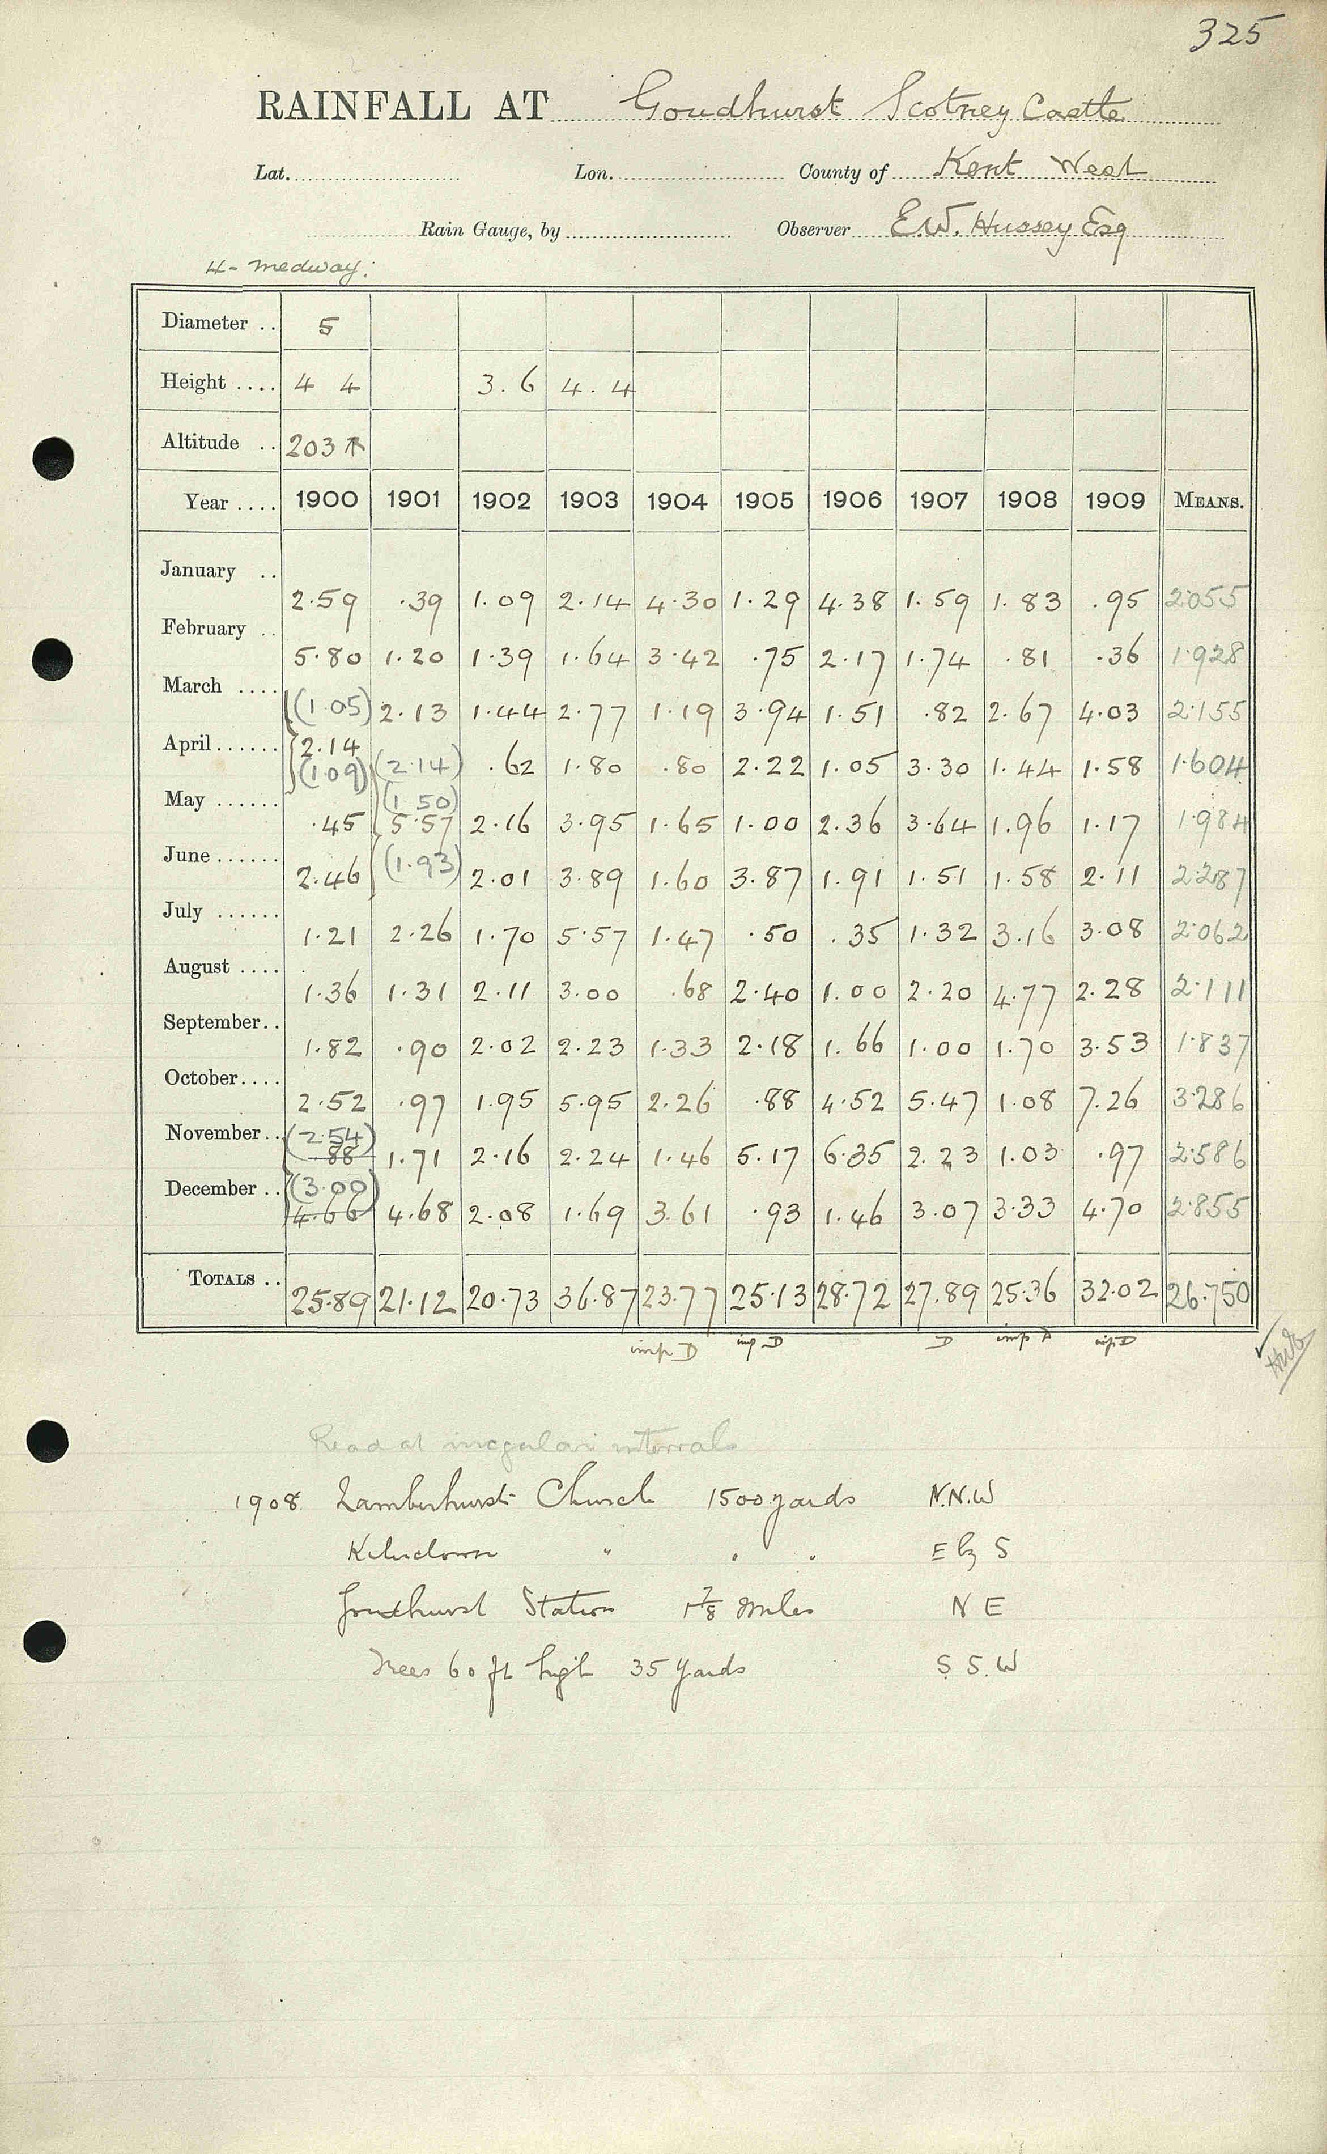 325
RAINFALL AT Goudhurst Scotney Castle
Lat. Lon. County of Kent West
Rain Gauge, by Observer E.W. Hussey Esq
4- Medway.
Diameter .. 5
Height .... 4 4 3.6 4.4
Altitude .. 203
Year .... 1900 1901 1902 1903 1904 1905 1906 1907 1908 1909 MEANS.
January .. 2.59 .39 1.09 2.14 4.30 1.29 4.38 1.59 1.83 .95 2.055
February .. 5.80 1.20 1.39 1.64 3.42 .75 2.17 1.74 .81 .36 1.928
March .... (1.05) 2.13 1.44 2.77 1.19 3.94 1.51 .82 2.67 4.03 2.155
April ...... 2.14
(1.09) (2.14) .62 1.80 .80 2.22 1.05 3.30 1.44 1.58 1.604
May ...... (1.50)
.45 5.57 2.16 3.95 1.65 1.00 2.36 3.64 1.96 1.17 1.984
June ...... 2.46 (1.93) 2.01 3.89 1.60 3.87 1.91 1.51 1.58 2.11 2.287
July ...... 1.21 2.26 1.70 5.57 1.47 .50 .35 1.32 3.16 3.08 2.062
August .... 1.36 1.31 2.11 3.00 .68 2.40 1.00 2.20 4.77 2.28 2.111
September.. 1.82 .90 2.02 2.23 1.33 2.18 1.66 1.00 1.70 3.53 1.837
October.... 2.52 .97 1.95 5.95 2.26 .88 4.52 5.47 1.08 7.26 3.286
November.. (2.54)
.88 1.71 2.16 2.24 1.46 5.17 6.35 2.23 1.03 .97 2.586
December .. (3.00)
4.66 4.68 2.08 1.69 3.61 .93 1.46 3.07 3.33 4.70 2.855
TOTALS .. 25.89 21.12 20.73 36.87 23.77 25.13 28.72 27.89 25.36 32.02 26.750
imp D imp D D imp D imp D
Read at irregular intervals
1908 Lamberhurst Church 1500 yards N.N.W
Kilndown " " " E by S
Goudhurst Station 1 7/8 miles N E
Trees 60 ft high 35 yards S S.W